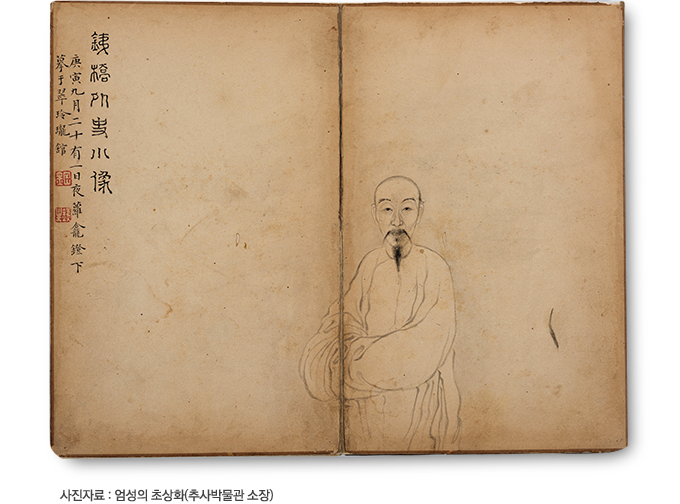 銕橋外史小像
庚寅九月二十有一日夜蘿龕鐙下
摹于翠玲瓏館
사진자료 : 엄성의 초상화(추사박물관 소장)